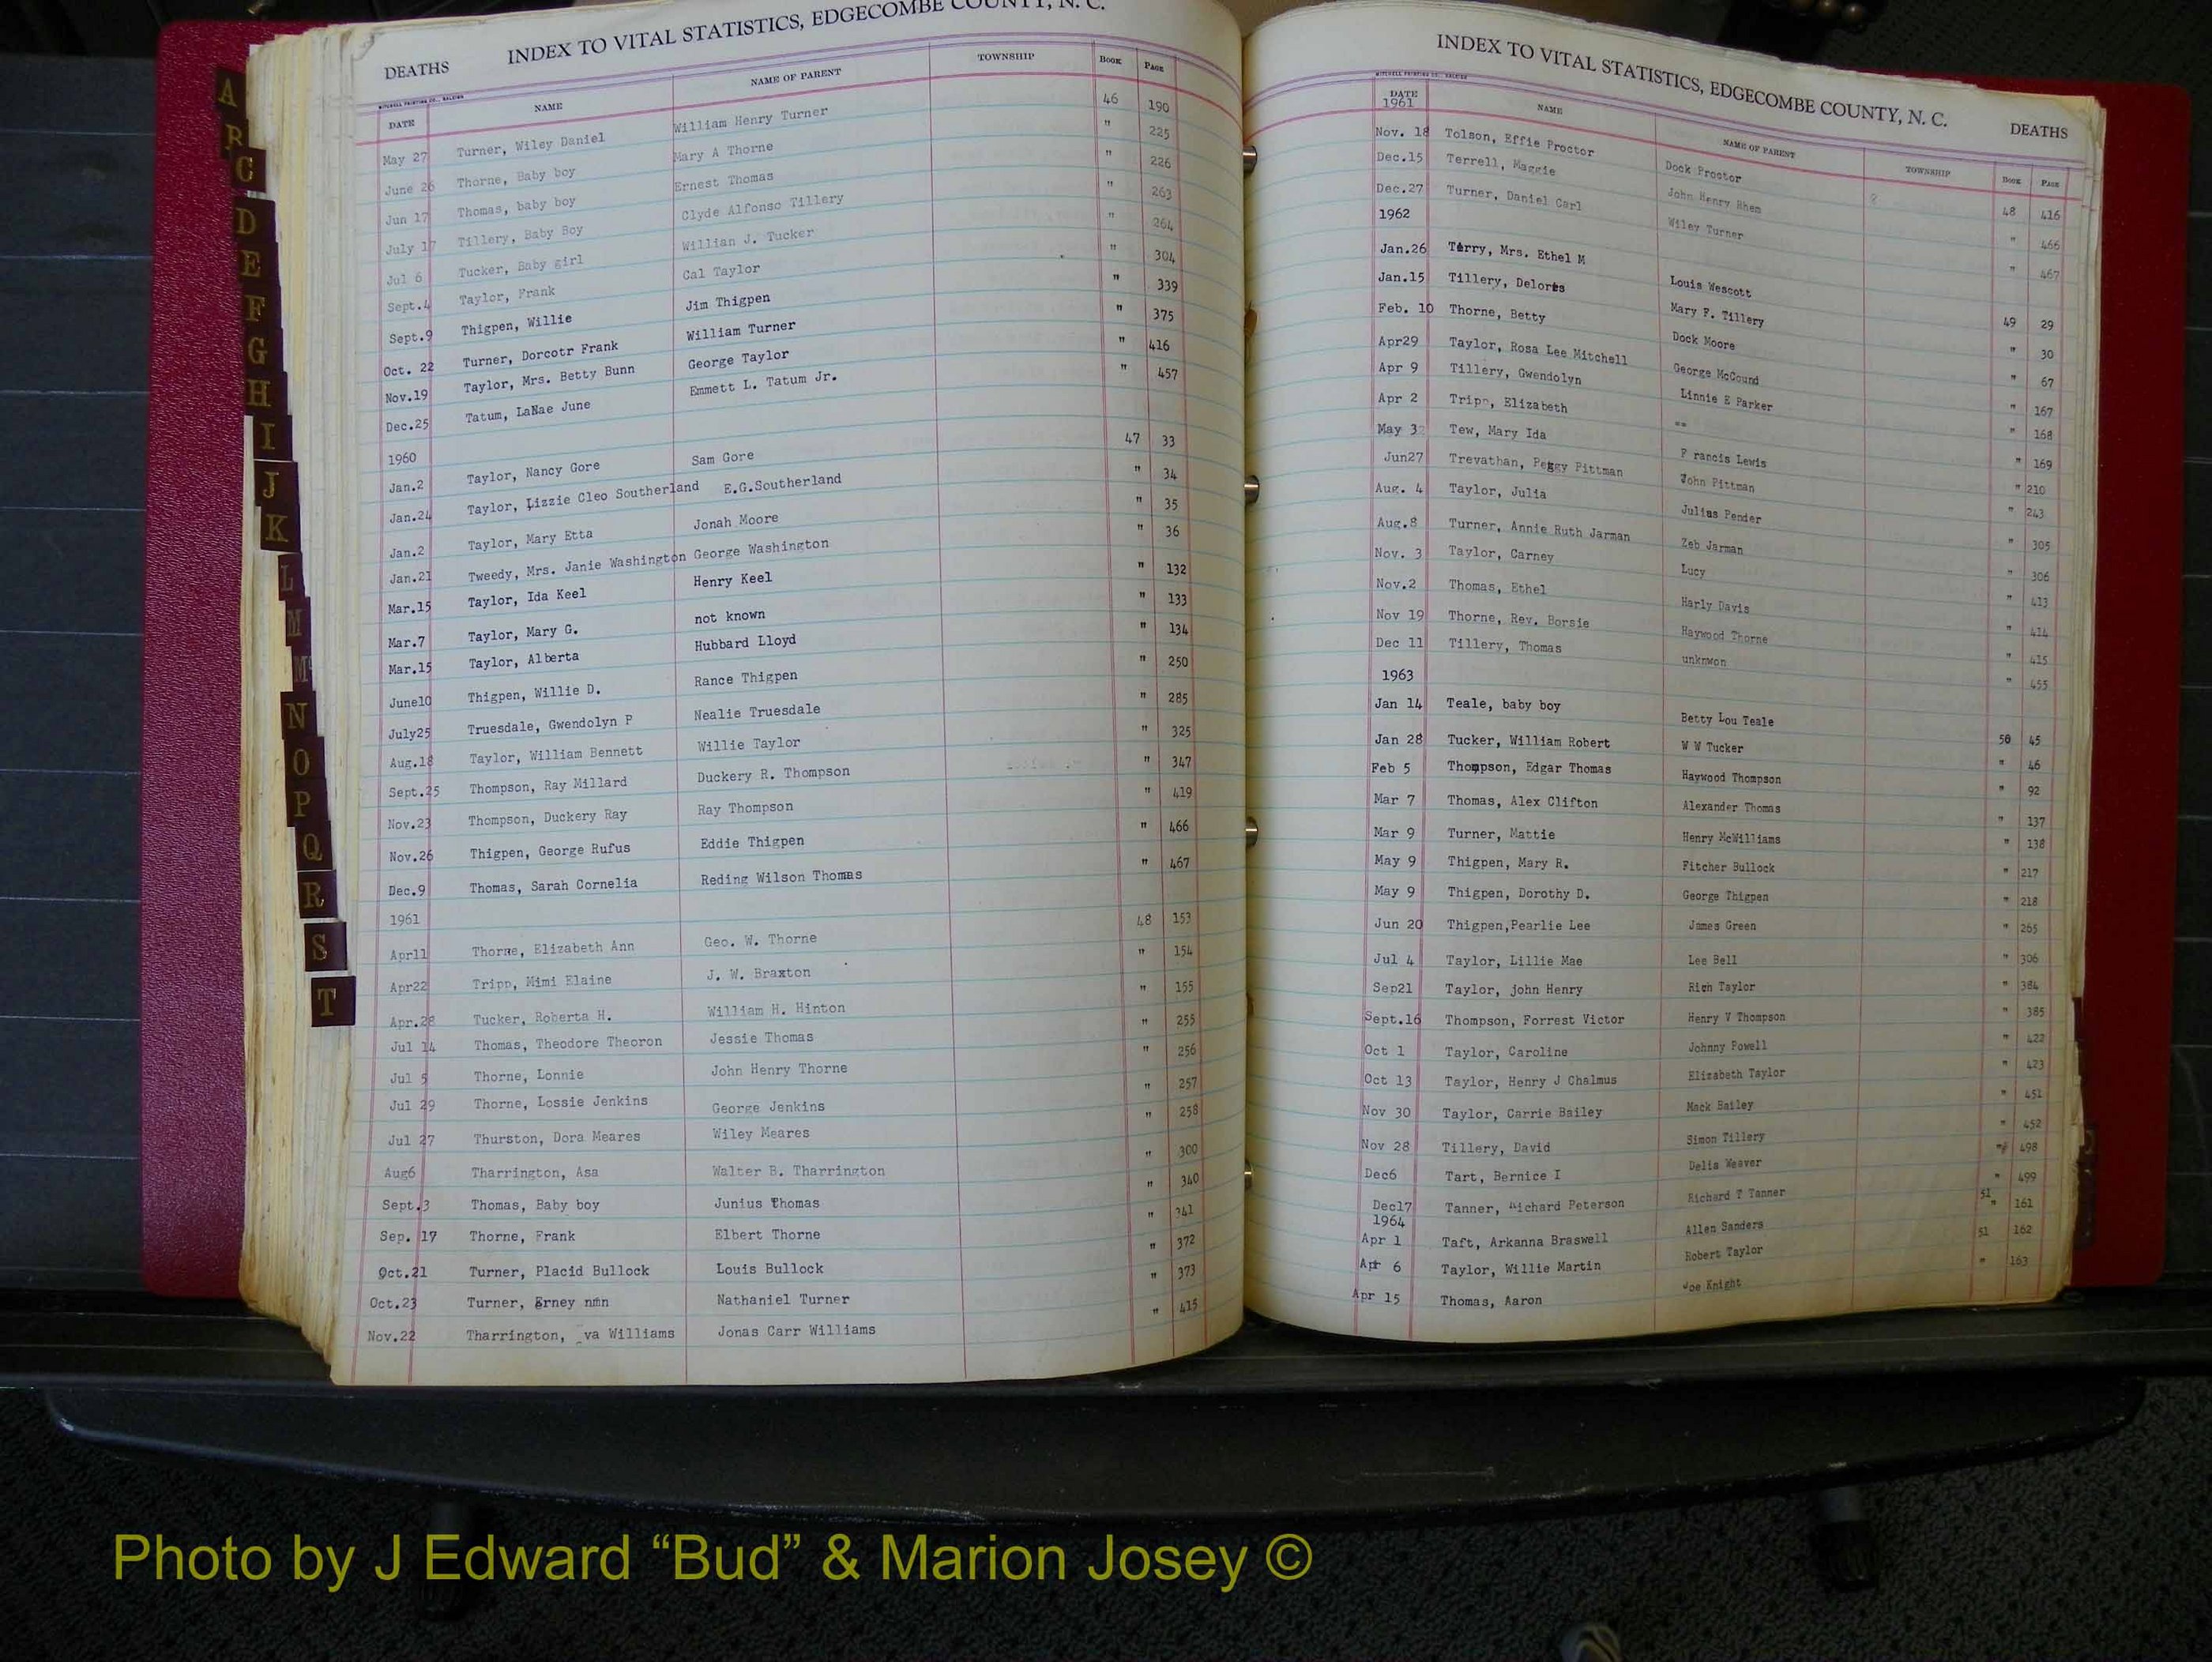 A
B
C
D
E
F
G
H
I
J
K
L
M
Mc
N
O
P
Q
R
S
T
DEATHS INDEX TO VITAL STATISTICS, EDGECOMBE COUNTY, N. C.
MITCHELL PRINTING CO., RALEIGH
DATE NAME NAME OF PARENT TOWNSHIP BOOK PAGE
May 27 Turner, Wiley Daniel William Henry Turner 46 190
June 26 Thorne, Baby boy Mary A Thorne " 225
Jun 17 Thomas, baby boy Ernest Thomas " 226
July 17 Tillery, Baby Boy Clyde Alfonso Tillery " 263
Jul 6 Tucker, Baby girl Willian J. Tucker " 264
Sept.4 Taylor, Frank Cal Taylor " 304
Sept.9 Thigpen, Willie Jim Thigpen " 339
Oct. 22 Turner, Dorcotr Frank William Turner " 375
Nov.19 Taylor, Mrs. Betty Bunn George Taylor " 416
Dec.25 Tatum, LaNae June Emmett L. Tatum Jr. " 457
1960
Jan.2 Taylor, Nancy Gore Sam Gore 47 33
Jan.24 Taylor, Lizzie Cleo Southerland E.G.Southerland " 34
Jan.2 Taylor, Mary Etta Jonah Moore " 35
Jan.21 Tweedy, Mrs. Janie Washington George Washington " 36
Mar.15 Taylor, Ida Keel Henry Keel " 132
Mar.7 Taylor, Mary G. not known " 133
Mar.15 Taylor, Alberta Hubbard Lloyd " 134
June10 Thigpen, Willie D. Rance Thigpen " 250
July25 Truesdale, Gwendolyn P Nealie Truesdale " 285
Aug.18 Taylor, William Bennett Willie Taylor " 325
Sept.25 Thompson, Ray Millard Duckery R. Thompson " 347
Nov.23 Thompson, Duckery Ray Ray Thompson " 419
Nov.26 Thigpen, George Rufus Eddie Thigpen " 466
Dec.9 Thomas, Sarah Cornelia Reding Wilson Thomas " 467
1961
Apr11 Thorne, Elizabeth Ann Geo. W. Thorne 48 153
Apr22 Tripp, Mimi Elaine J. W. Braxton " 154
Apr.28 Tucker, Roberta H. William H. Hinton " 155
Jul 14 Thomas, Theodore Theoron Jessie Thomas " 255
Jul 5 Thorne, Lonnie John Henry Thorne " 256
Jul 29 Thorne, Lossie Jenkins George Jenkins " 257
Jul 27 Thurston, Dora Meares Wiley Meares " 258
Aug6 Tharrington, Asa Walter B. Tharrington " 300
Sept.3 Thomas, Baby boy Junius Thomas " 340
Sep. 17 Thorne, Frank Elbert Thorne " 341
Oct.21 Turner, Placid Bullock Louis Bullock " 372
Oct.23 Turner, Erney nmn Nathaniel Turner " 373
Nov.22 Tharrington, va Williams Jonas Carr Williams " 415
INDEX TO VITAL STATISTICS, EDGECOMBE COUNTY, N. C. DEATHS
MITCHELL PRINTING CO., RALEIGH
DATE NAME NAME OF PARENT TOWNSHIP BOOK PAGE
1961
Nov. 18 Tolson, Effie Proctor Dock Proctor ? 48 416
Dec.15 Terrell, Maggie John Henry Rhem " 466
Dec.27 Turner, Daniel Carl Wiley Turner " 467
1962
Jan.26 Terry, Mrs. Ethel M Louis Wescott 49 29
Jan.15 Tillery, Delores Mary F. Tillery " 30
Feb. 10 Thorne, Betty Dock Moore " 67
Apr29 Taylor, Rosa Lee Mitchell George McCound " 167
Apr 9 Tillery, Gwendolyn Linnie E Parker " 168
Apr 2 Tripp, Elizabeth -- " 169
May 3 Tew, Mary Ida F rancis Lewis " 210
Jun27 Trevathan, Peggy Pittman John Pittman " 243
Aug. 4 Taylor, Julia Julius Pender " 305
Aug.8 Turner, Annie Ruth Jarman Zeb Jarman " 306
Nov. 3 Taylor, Carney Lucy " 413
Nov.2 Thomas, Ethel Harly Davis " 414
Nov 19 Thorne, Rev. Borsie Haywood Thorne " 415
Dec 11 Tillery, Thomas unknwon " 455
1963
Jan 14 Teale, baby boy Betty Lou Teale 50 45
Jan 28 Tucker, William Robert W W Tucker " 46
Feb 5 Thompson, Edgar Thomas Haywood Thompson " 92
Mar 7 Thomas, Alex Clifton Alexander Thomas " 137
Mar 9 Turner, Mattie Henry McWilliams " 138
May 9 Thigpen, Mary R. Fitcher Bullock " 217
May 9 Thigpen, Dorothy D. George Thigpen " 218
Jun 20 Thigpen,Pearlie Lee James Green " 265
Jul 4 Taylor, Lillie Mae Lee Bell " 306
Sep21 Taylor, john Henry Rich Taylor " 384
Sept.16 Thompson, Forrest Victor Henry V Thompson " 385
Oct 1 Taylor, Caroline Johnny Powell " 422
Oct 13 Taylor, Henry J Chalmus Elizabeth Taylor " 423
Nov 30 Taylor, Carrie Bailey Mack Bailey " 451
Nov 28 Tillery, David Simon Tillery " 452
Dec6 Tart, Bernice I Delia Weaver " 498
Dec17 Tanner, Richard Peterson Richard T Tanner " 499
1964
Apr 1 Taft, Arkanna Braswell Allen Sanders 51 " 161
Apr 6 Taylor, Willie Martin Robert Taylor 51 162
Apr 15 Thomas, Aaron Joe Knight " 163
Photo by J Edward “Bud” & Marion Josey ©